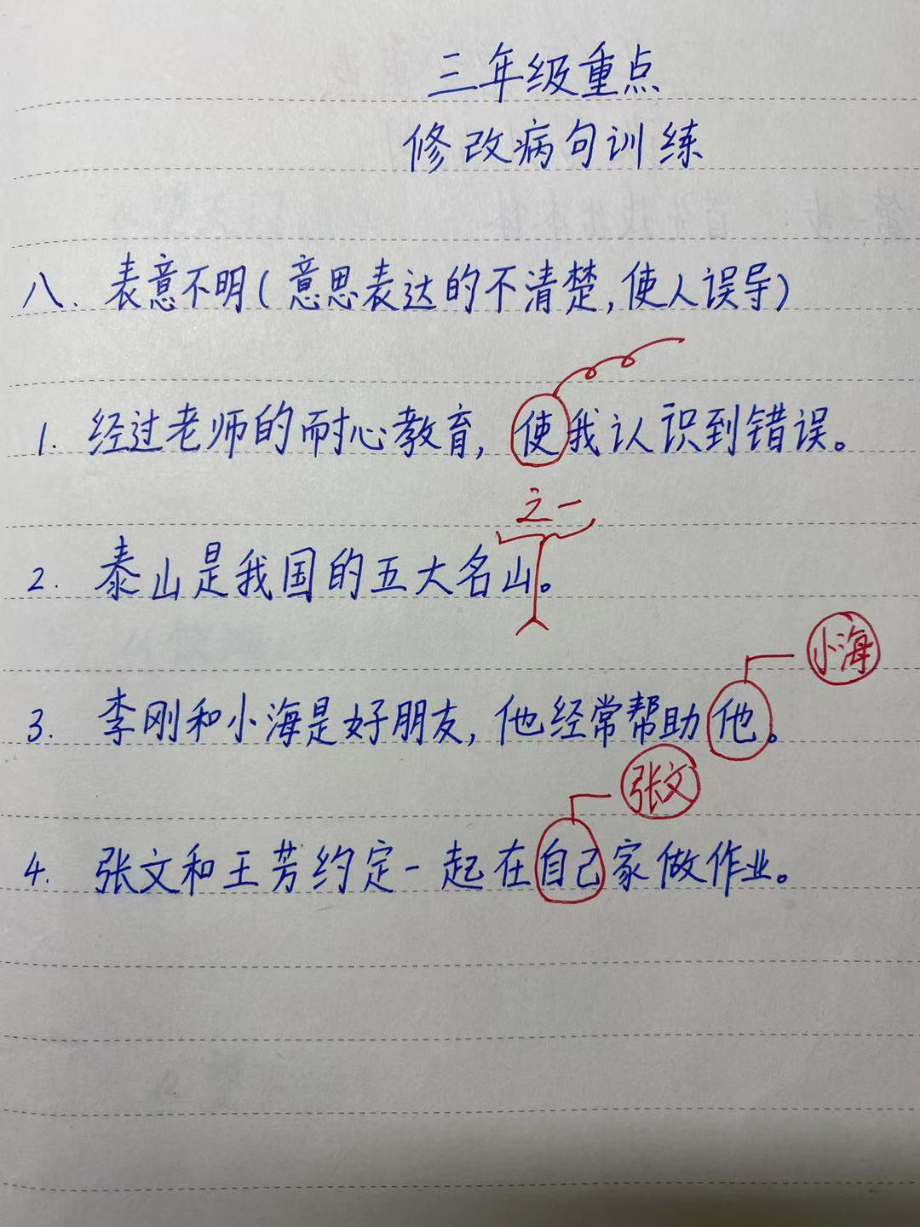 三年级重点
修改病句训练
八. 表意不明(意思表达的不清楚,使人误导)
1. 经过老师的耐心教育, 使我认识到错误。
之一
2. 泰山是我国的五大名山。
小海
3. 李刚和小海是好朋友, 他经常帮助他。
张文
4. 张文和王芳约定一起在自己家做作业。